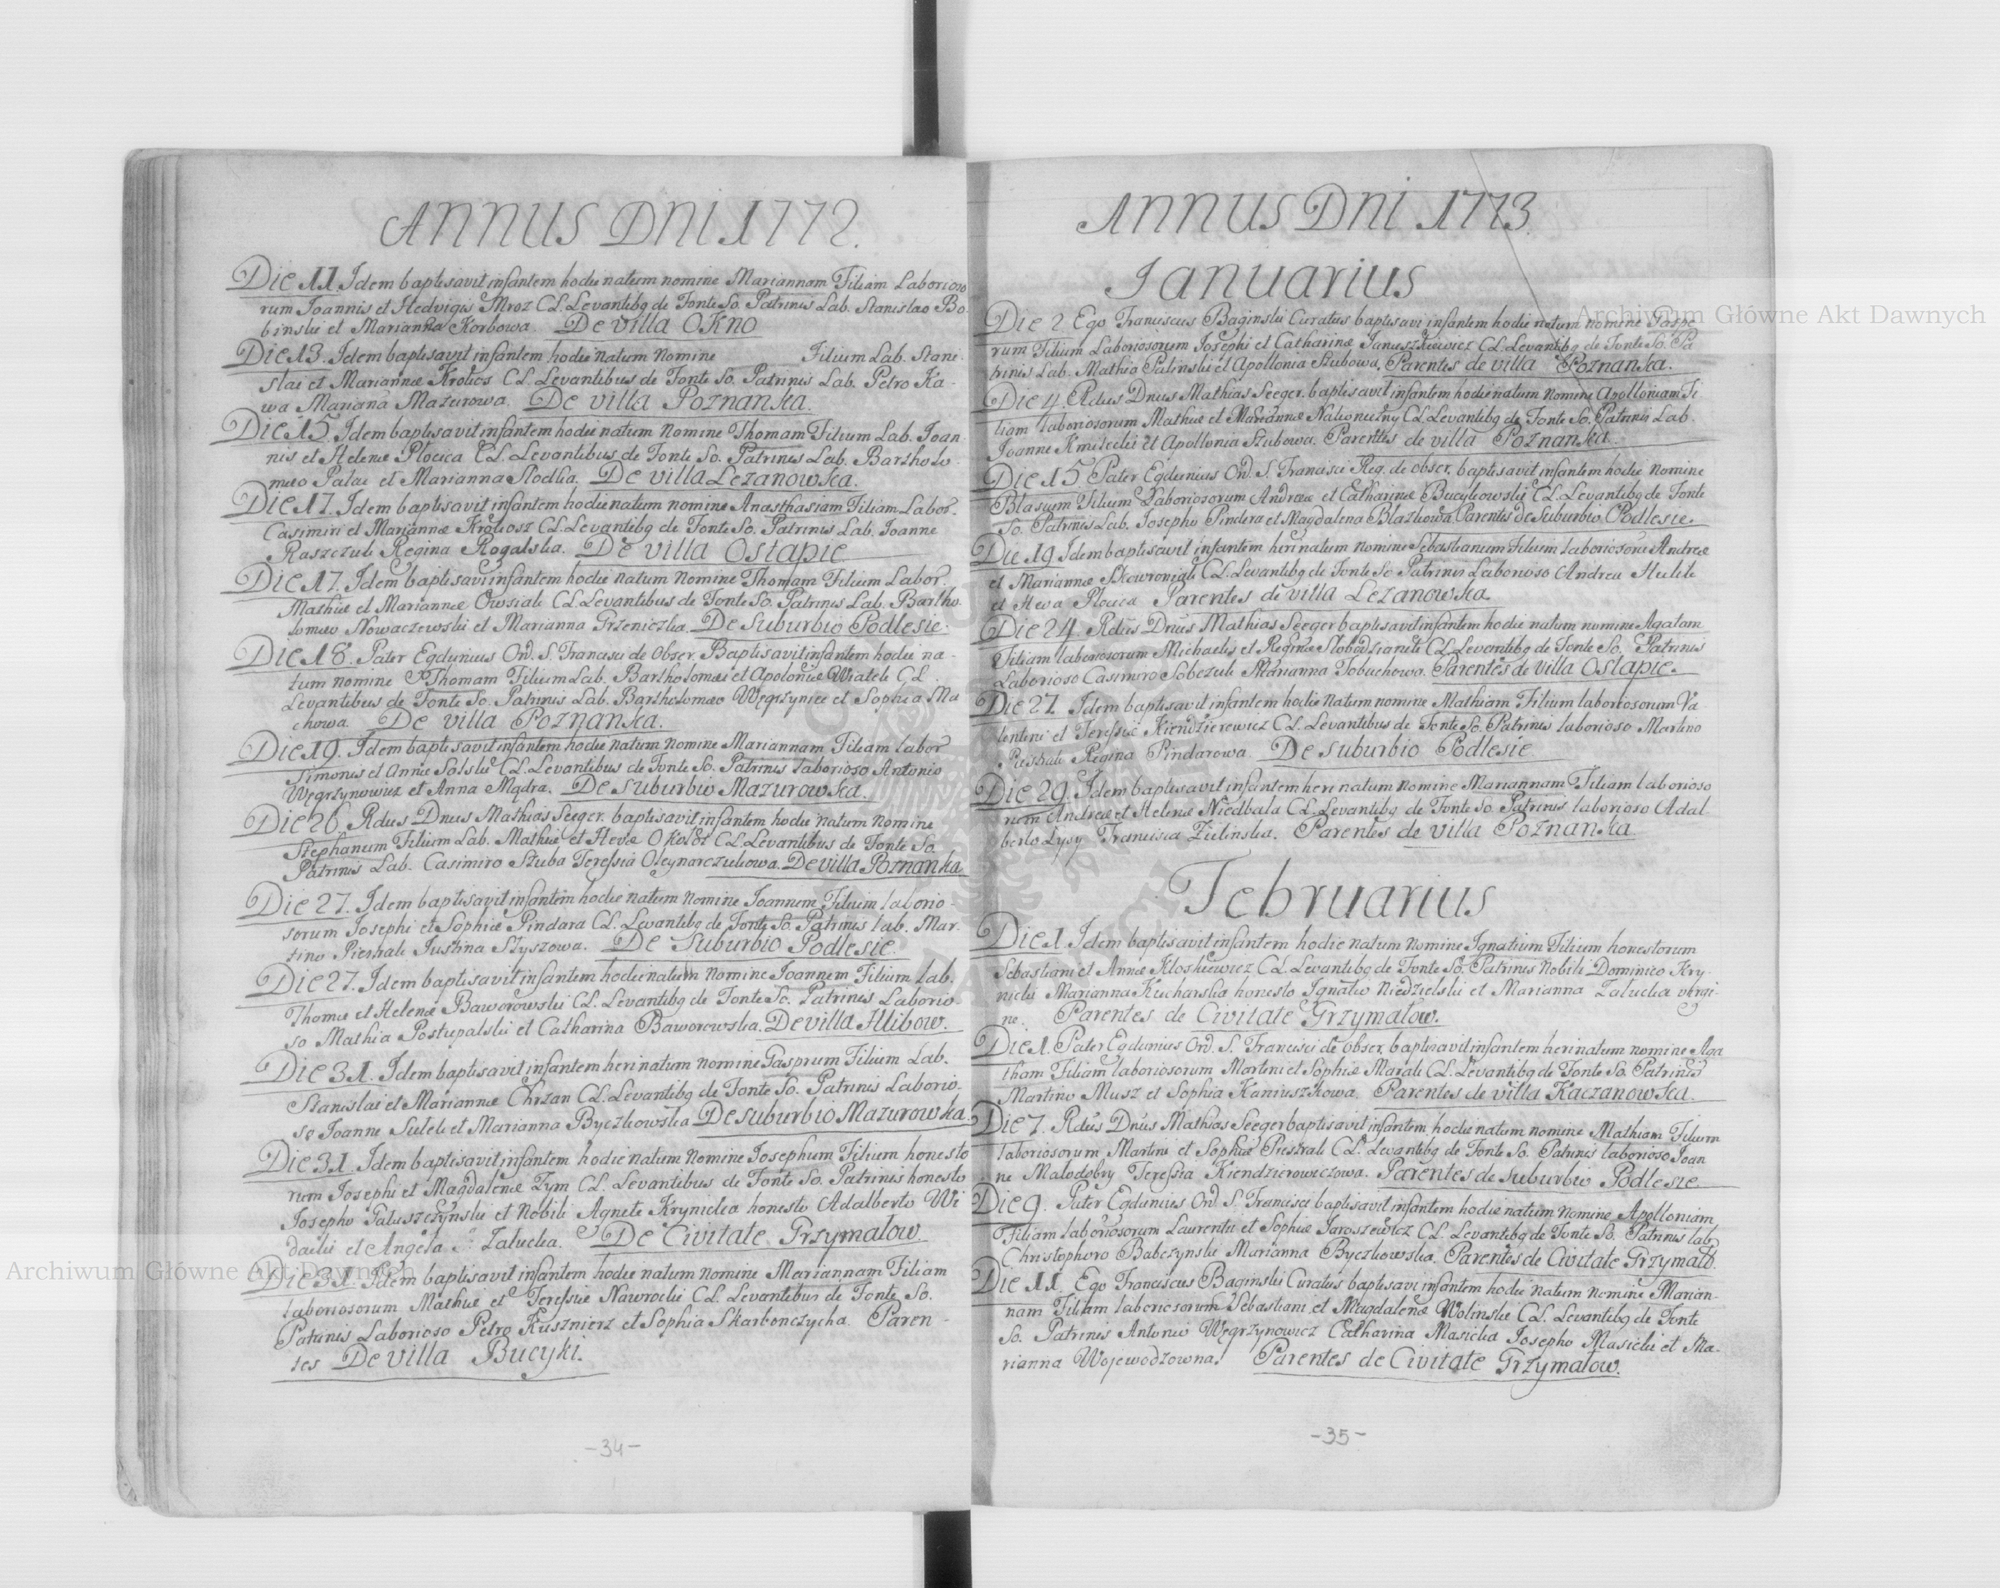 ANNUS DNI 1772.
Die 11. Idem baptisavit infantem hodie natum nomine Mariannam Filiam Laborioso
rum Joannis et Hedvigis Mroz C.L. Levantibq de Fonte So. Patrinis Lab. Stanislao Bo-
binski et Marianna Korbowa. De villa OKno
Die 13. Idem baptisavit infantem hodie natum nomine Filium Lab. Stani-
slai et Mariannæ Krolicz CL Levantibus de Fonte So. Patrinis Lab. Petro Ka-
wa Mariana Mazurowa. De villa Poznanka.
Die 15. Idem baptisavit infantem hodie natum nomine Thomam Filium Lab. Joan-
nis et Helenæ Plocica C.L. Levantibus de Fonte So. Patrinis Lab. Bartholo-
mæo Palac et Marianna Slodka. De villa Lezanowka.
Die 17. Idem baptisavit infantem hodie natum nomine Anasthasiam Filiam Labor.
Casimiri et Mariannæ Krokosz CL. Levantibq de Fonte So. Patrinis Lab. Joanne
Raszczuk Regina Rogalska. De villa Ostapie
Die 17. Idem baptisavi infantem hodie natum nomine Thomam Filium Labor.
Mathiæ et Mariannæ Owsiak CL. Levantibus de Fonte So. Patrinis Lab. Bartho-
lomæo Nowaczewski et Marianna Grzeniczka. De Suburbio Podlesie.
Die 18. Pater Egdunius Ord. S. Francisci de Obser. Baptisavit infantem hodie na-
tum nomine Thomam Filium Lab. Bartholomæi et Apoloniæ Wiatek C.L.
Levantibus de Fonte So. Patrinis Lab. Bartholomæo Węgrzyniec et Sophia Ma
chowa. De villa Poznanka.
Die 19. Idem baptisavit infantem hodie natum nomine Mariannam Filiam Labor
Simonis et Annæ Solskie CL. Levantibus de Fonte So. Patrinis laborioso Antonio
Węgrzynowicz et Anna Mądra. De Suburbio Mazurowka.
Die 26. Rdus Dnus Mathias Seeger. baptisavit infantem hodie natum nomine
Stephanum Filium Lab. Mathiæ et Hevæ Okolot CL. Levantibus de Fonte So.
Patrinis Lab. Casimiro Szuba Teressia Oleynarczukowa. De villa Poznanka
Die 27. Idem baptisavit infantem hodie natum nomine Joannem Filium laborio
sorum Josephi et Sophiæ Pindara CL. Levantibq de Fonte So. Patrinis lab. Mar-
tino Piestrak Justina Szyszowa. De Suburbio Podlesie.
Die 27. Idem baptisavit infantem hodie natum nomine Joannem Filium Lab.
Thomæ et Helenæ Baworowski CL. Levantibq de Fonte So. Patrinis Laborio-
so Mathia Postupalski et Catharina Baworowska. De villa Hlibow.
Die 31. Idem baptisavit infantem heri natum nomine Gasprum Filium Lab.
Stanislai et Mariannæ Chrzan CL. Levantibq de Fonte So. Patrinis Laborio-
so Joanne Sulek et Marianna Byczkowska De suburbio Mazurowka.
Die 31. Idem baptisavit infantem hodie natum nomine Josephum Filium honesto
rum Josephi et Magdalenæ Zym CL. Levantibus de Fonte So. Patrinis honesto
Josepho Galuszczynski et Nobili Agnete Krynicka honesto Adalberto Wi
dacki et Angela Zalucka. De Civitate Grzymalow
Die 31. Idem baptisavit infantem hodie natum nomine Mariannam Filiam
laboriosorum Mathiæ et Teressiæ Nawrocki CL. Levantibus de Fonte So.
Patrinis Laborioso Petro Kusznierz et Sophia Skarbonczycha. Paren-
tes De villa Bucyki.
-34-
ANNUS DNI 1773.
Ianuarius
Die 2 Ego Franciscus Baginski Curatus baptisavi infantem hodie natum nomine Gaspe
rum Filium Laboriosorum Josephi et Catharinæ Januszkiewicz CL. Levantibq de Fonte So. Pa
trinis Lab. Mathia Zulinski et Apollonia Szubowa. Parentes de villa Poznanka.
Die 4 Rdus Dnus Mathias Seeger. baptisavit infantem hodie natum nomine Apolloniam Fi
liam laboriosorum Mathiæ et Mariannæ Nakoneczny CL. Levantibq de Fonte So. Patrinis Lab.
Joanne Kmitecki et Apollonia Szubowa. Parentes de villa Poznanka.
Die 15 Pater Egdunius Ord. S. Francisci Reg. de obser. baptisavit infantem hodie nomine
Blasium Filium Laboriosorum Andreæ et Catharinæ Buczkowski CL. Levantibq de Fonte
So. Patrinis Lab. Josepho Pindera et Magdalena Blazkowa. Parentes de Suburbio Podlesie.
Die 19 Idem baptisavit infantem heri natum nomine Sebastianum Filium laboriosorū Andreæ
et Mariannæ Skowroniak CL. Levantibq de Fonte So Patrinis Laborioso Andrea Hulik
et Heva Plocica Parentes de villa Lezanowka.
Die 24. Rdus Dnus Mathias Seeger baptisavit infantem hodie natum nomine Agatam
Filiam laboriosorum Michaelis et Reginæ Slobodzianek CL. Levantibq de Fonte So. Patrinis
Laborioso Casimiro Sobczuk Marianna Tobuchowa. Parentes de villa Ostapie.
Die 27. Idem baptisavit infantem hodie natum nomine Mathiam Filium laboriosorum Va
lentini et Teressiæ Kiendzierewicz CL. Levantibus de Fonte So. Patrinis laborioso Martino
Piestrak Regina Pindarowa. De suburbio Podlesie
Die 29. Idem baptisavit infantem heri natum nomine Mariannam Filiam laborioso
rum Andreæ et Helenæ Niedbala CL. Levantibq de Fonte So Patrinis laborioso Adal
berto Lysy Francisca Zulinska. Parentes de villa Poznanka
Februarius
Die 1. Idem baptisavit infantem hodie natum nomine Ignatium Filium honestorum
Sebastiani et Annæ Kloskiewicz CL. Levantibq de Fonte So. Patrinis Nobili Dominico Kry-
nicki Marianna Kucharska honesto Ignatio Niedzielski et Marianna Zalucka virgi-
ne. Parentes de Civitate Grzymalow.
Die 1. Pater Egdunius Ord. S. Francisci de obser. baptisavit infantem heri natum nomine Aga
tham Filiam laboriosorum Martini et Sophiæ Marak CL. Levantibq de Fonte So. Patrinis
Martino Musz et Sophia Kaniuszkowa. Parentes de villa Kaczanowka.
Die 7. Rdus Dnus Mathias Seeger baptisavit infantem hodie natum nomine Mathiam Filium
laboriosorum Martini et Sophiæ Piestrak CL. Levantibq de Fonte So. Patrinis laborioso Joan
ne Malodobry Teressia Kiendzierowiczowa. Parentes de suburbio Podlesie
Die 9. Pater Egdunius Ord S. Francisci baptisavit infantem hodie natum nomine Apolloniam
Filiam laboriosorum Laurentii et Sophiæ Jaroszewicz CL. Levantibq de Fonte So. Patrinis lab.
Christophoro Babczynski Marianna Byczkowska. Parentes de Civitate Grzymalo.
Die 11. Ego Franciscus Baginski Curatus baptisavi infantem hodie natum nomine Marian-
nam Filiam laboriosorum Sebastiani et Magdalenæ Wolinskie CL. Levantibq de Fonte
So. Patrinis Antonio Węgrzynowicz Catharina Masicka Josepho Masicki et Ma-
rianna Wojewodzowna. Parentes de Civitate Grzymalow.
-35-
Archiwum Główne Akt Dawnych
Archiwum Główne Akt Dawnych